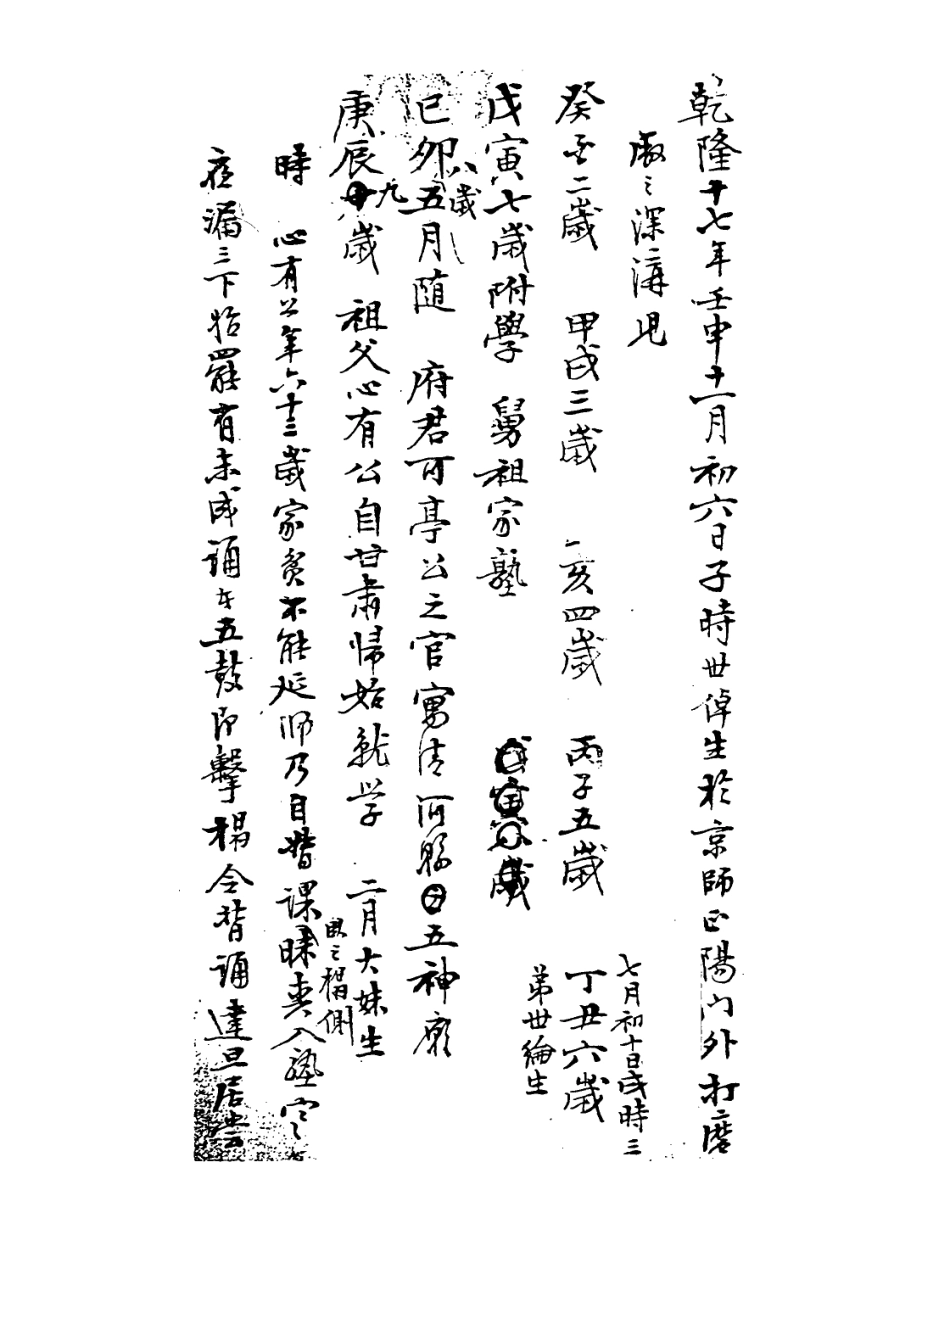 乾隆十七年壬申十一月初六日子時世倬生於京師正陽门外打磨
廠之深溝児
癸酉二歲 甲戌三歲 乙亥四歲 丙子五歲 丁丑六歲
七月初十日戌時三
弟世綸生
戊寅七歲附學 舅祖家塾
己卯八歲五月随 府君可亭公之官寓清河縣五神廟
庚辰九歲 祖父心有公自甘肅歸始就学 二月大妹生
時 心有公年六十三歲家貧不能延师乃自督课昧爽入塾
臥之榻側
夜漏三下始罷有未成誦者五鼓即擊榻令背誦達旦居